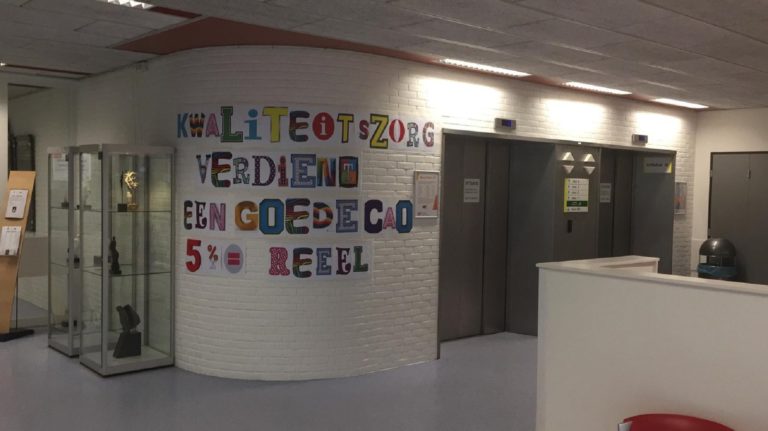 KWALiTEiTSZORG
VERDIEND
EEN GOEDE CAO
5% = REEEL